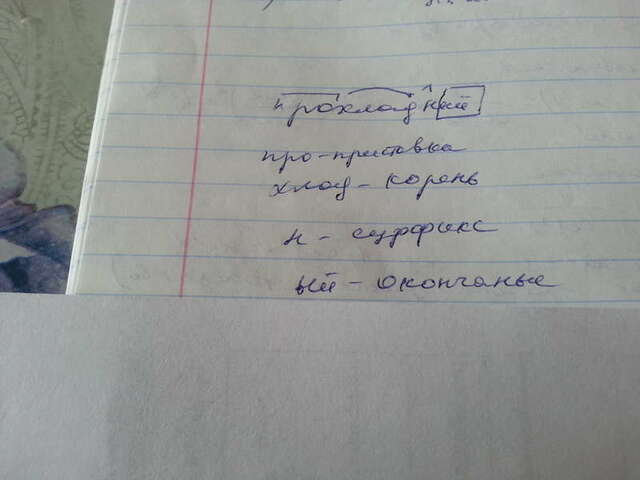 прохладный
про-приставка
хлад - корень
н - суффикс
ый - окончанье